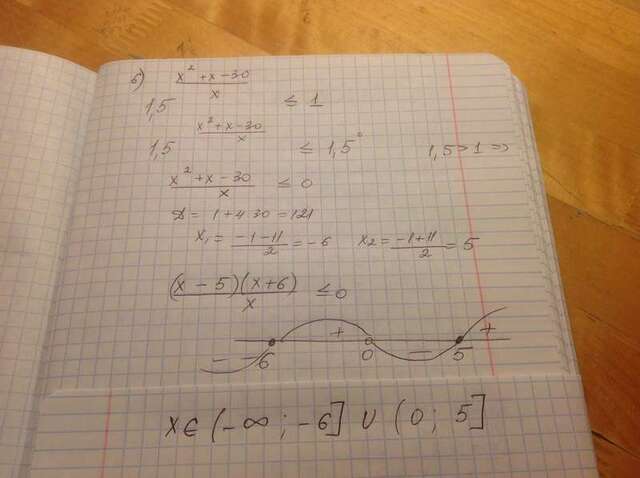 б) x² + x - 30
x
1,5 ≤ 1
x² + x - 30
x
1,5 ≤ 1,5⁰ 1,5 > 1 ⇒
x² + x - 30
x ≤ 0
D = 1 + 4·30 = 121
x₁ = -1 - 11 / 2 = -6 x₂ = -1 + 11 / 2 = 5
(x - 5)(x + 6)
x ≤ 0
- + - +
-6 0 5
x ∈ (-∞; -6] ∪ (0; 5]